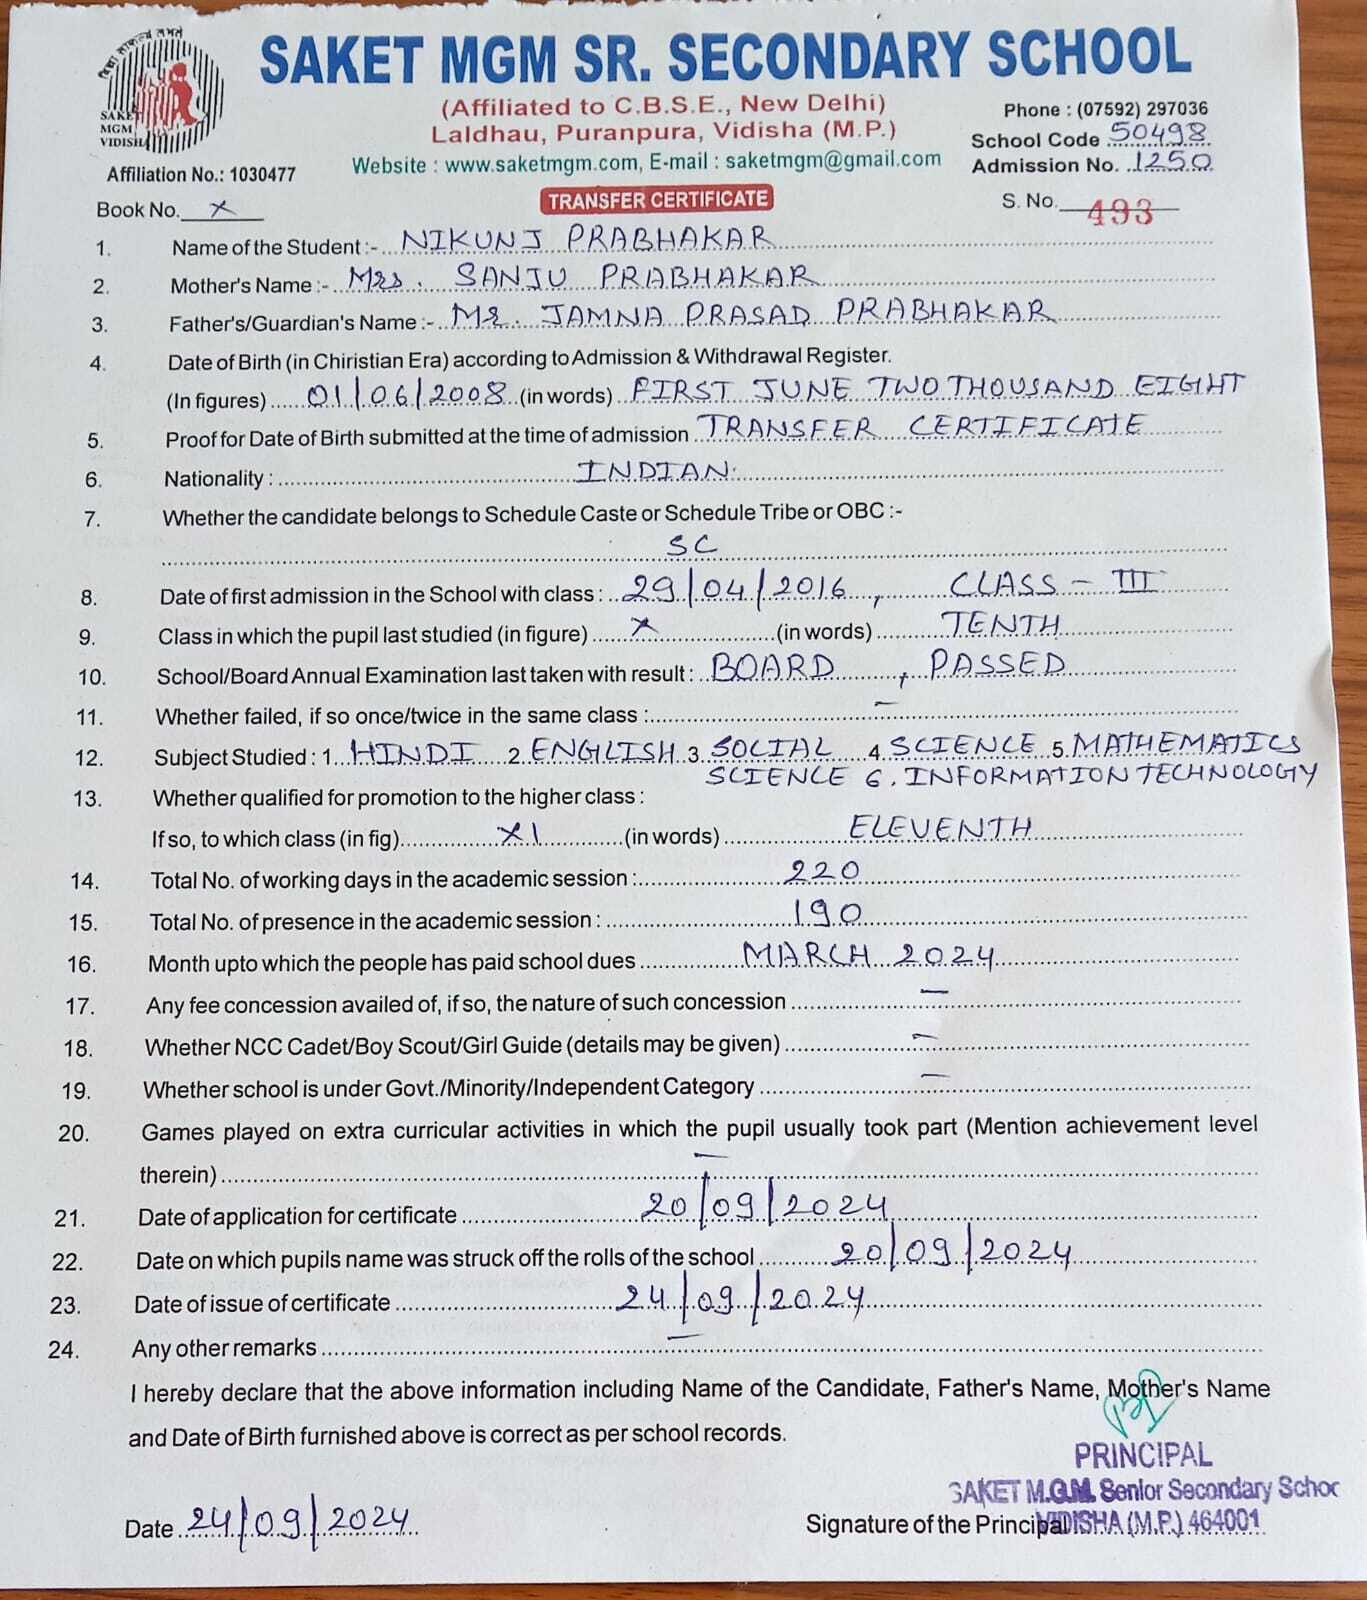 विद्या साफल्य लभते
SAKET
MGM
VIDISHA
SAKET MGM SR. SECONDARY SCHOOL
(Affiliated to C.B.S.E., New Delhi)
Laldhau, Puranpura, Vidisha (M.P.)
Website : www.saketmgm.com, E-mail : saketmgm@gmail.com
Phone : (07592) 297036
School Code 50498
Admission No. 1250
Affiliation No.: 1030477
Book No. X
TRANSFER CERTIFICATE
S. No. 493
1. Name of the Student :- NIKUNJ PRABHAKAR
2. Mother's Name :- Mrs. SANJU PRABHAKAR
3. Father's/Guardian's Name :- Mr. JAMNA PRASAD PRABHAKAR
4. Date of Birth (in Chiristian Era) according to Admission & Withdrawal Register.
(In figures) 01/06/2008 (in words) FIRST JUNE TWO THOUSAND EIGHT
5. Proof for Date of Birth submitted at the time of admission TRANSFER CERTIFICATE
6. Nationality : INDIAN
7. Whether the candidate belongs to Schedule Caste or Schedule Tribe or OBC :-
SC
8. Date of first admission in the School with class : 29/04/2016, CLASS - III
9. Class in which the pupil last studied (in figure) X (in words) TENTH
10. School/Board Annual Examination last taken with result : BOARD, PASSED
11. Whether failed, if so once/twice in the same class : —
12. Subject Studied : 1. HINDI 2. ENGLISH 3. SOCIAL 4. SCIENCE 5. MATHEMATICS
SCIENCE 6. INFORMATION TECHNOLOGY
13. Whether qualified for promotion to the higher class :
If so, to which class (in fig) XI (in words) ELEVENTH
14. Total No. of working days in the academic session : 220
15. Total No. of presence in the academic session : 190
16. Month upto which the people has paid school dues MARCH 2024
17. Any fee concession availed of, if so, the nature of such concession —
18. Whether NCC Cadet/Boy Scout/Girl Guide (details may be given) —
19. Whether school is under Govt./Minority/Independent Category —
20. Games played on extra curricular activities in which the pupil usually took part (Mention achievement level
therein) —
21. Date of application for certificate 20/09/2024
22. Date on which pupils name was struck off the rolls of the school 20/09/2024
23. Date of issue of certificate 24/09/2024
24. Any other remarks —
I hereby declare that the above information including Name of the Candidate, Father's Name, Mother's Name
and Date of Birth furnished above is correct as per school records.
PRINCIPAL
SAKET M.G.M. Senior Secondary Schoo
VIDISHA (M.P.) 464001
Date 24/09/2024
Signature of the Principal